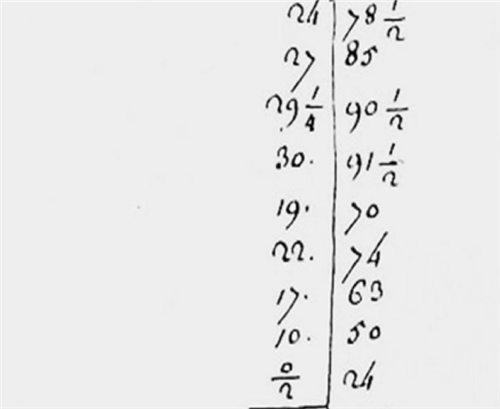 24 | 78 1/2
27 | 85
29 1/4 | 90 1/2
30. | 91 1/2
19. | 70
22. | 74
17. | 63
10. | 50
0/2 | 24